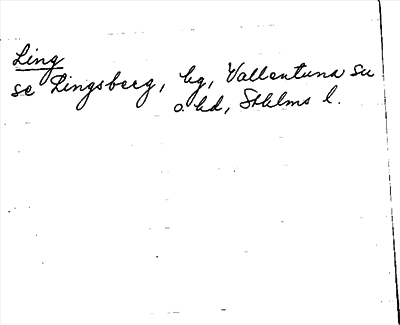 Ling
se Lingsberg, hg, Vallentuna sn
o. hd, Sthlms l.